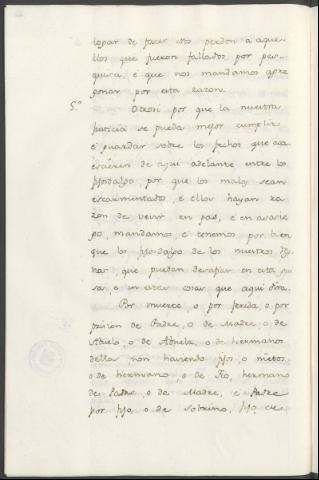 logar de facer Nos perdon à aque-
llos que fueron fallados por pes-
quisa, e que nos mandamos apre
gonar por esta razon.
5.º Otrosi por que la nuestra
justicia se pueda mejor cumplir
e guardar sobre los fechos que aca
escieren de aqui adelante entre los
fijosdalgo, por que los malos sean
escarmentados, e ellos hayan ra
zon de vevir en paz, e en asosie
go, mandamos, e tenemos por bien
que los fijosdalgo de los nuestros
que puedan desafiar en esta gui
sa, e en estas cosas, que aqui dira.
Por muerte, o por ferida, o por
prision de Padre, o de Madre, o de
Abuelo, o de Abuela, o de hermanos
della non haviendo fijos, o nietos,
o de hermano, o de Tio, hermano
de Padre, o de Madre, e Padre
por fijo, o de sobrino, fijo, de